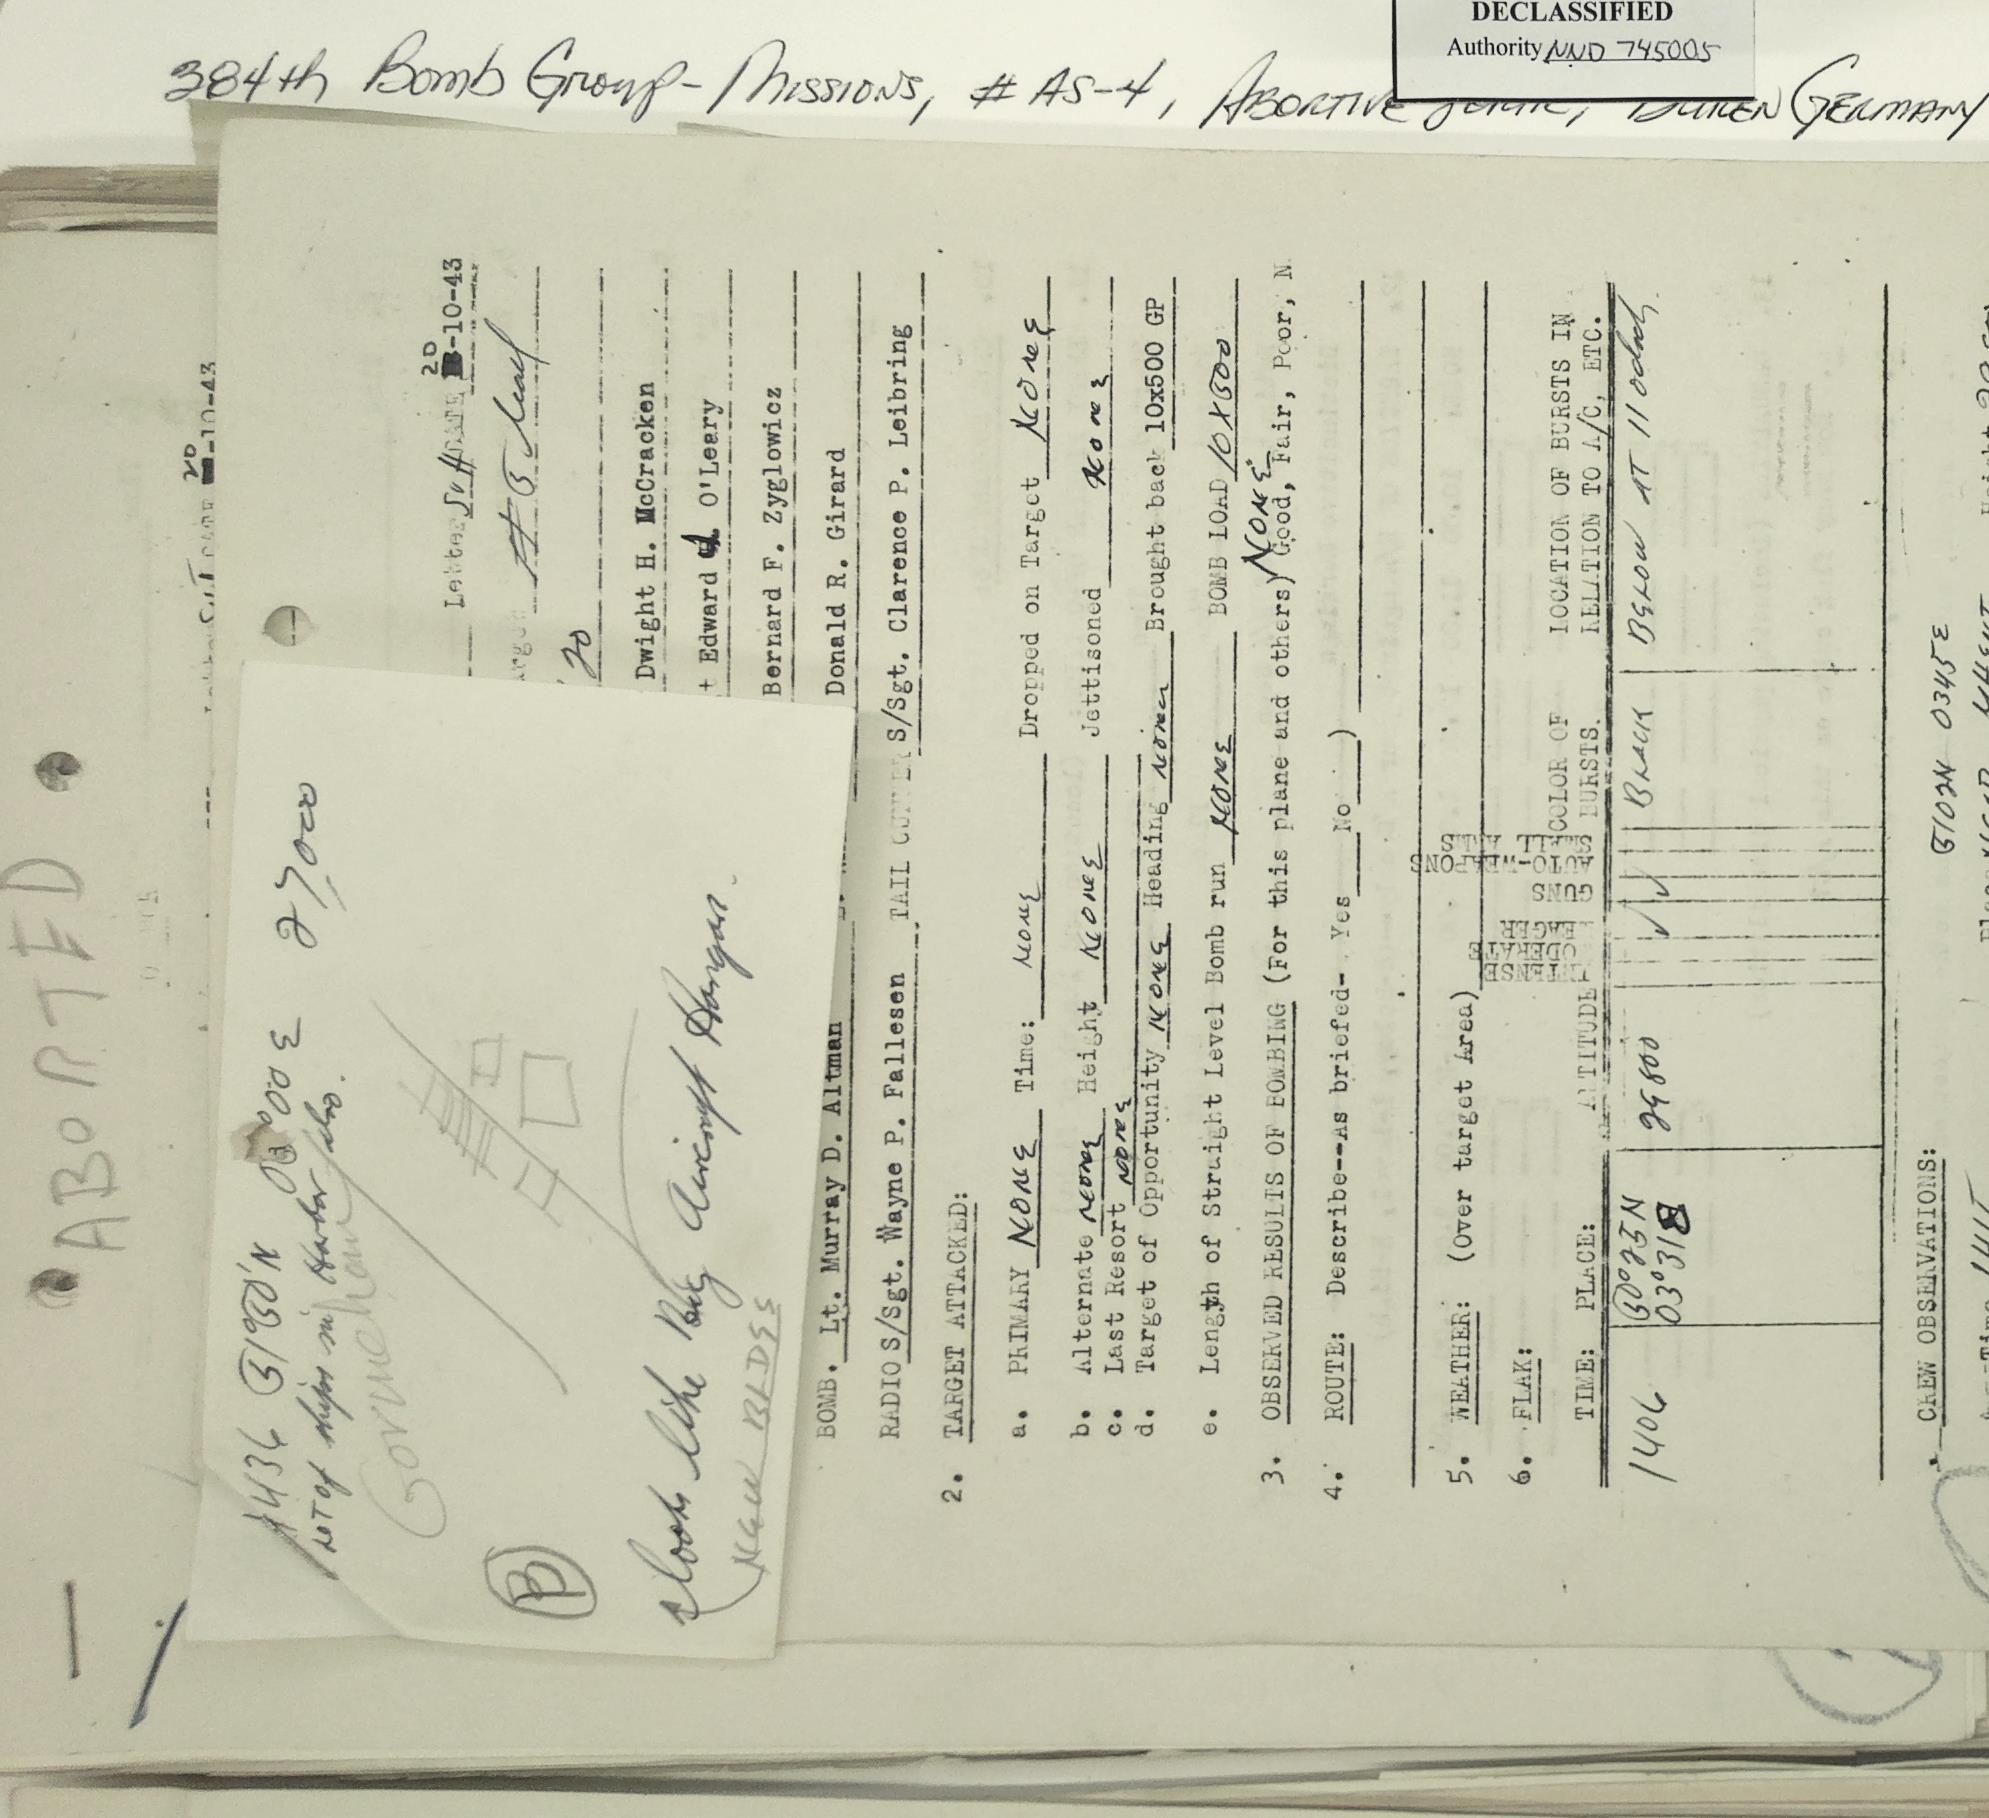 DECLASSIFIED
Authority NND 745005
384th Bomb Group - Missions, # AS-4, Abortive Sortie, Duren Germany
ABORTED
20
-10-43
1436 5150'N 00 E 27000
Lot of ships in Harbor also.
B
Looks like Big Aircraft Hangar.
NEW BLDGS
Letter DATE 20-10-43
#5 lead
20
Dwight H. McCracken
Edward J. O'Leary
Bernard F. Zyglowicz
Donald R. Girard
BOMB. Lt. Murray D. Altman
RADIO S/Sgt. Wayne P. Fallesen TAIL GUNNER S/Sgt. Clarence P. Leibring
2. TARGET ATTACKED:
a. PRIMARY NONE Time: NONE Dropped on Target NONE
b. Alternate NONE Height NONE Jettisoned NONE
c. Last Resort NONE
d. Target of Opportunity NONE Heading NONE Brought back 10x500 GP
e. Length of Straight Level Bomb run NONE BOMB LOAD 10X500
3. OBSERVED RESULTS OF BOMBING (For this plane and others) NONE Good, Fair, Poor, N
4. ROUTE: Describe--As briefed- Yes No )
5. WEATHER: (Over target Area)
6. FLAK:
TIME: PLACE: ALTITUDE INTENSE MODERATE MEAGER GUNS AUTO-WEAPONS SMALL ARMS COLOR OF BURSTS. LOCATION OF BURSTS IN RELATION TO A/C, ETC.
1406 50°25N 29800 ✓ ✓ BLACK BELOW AT 11 oclock.
03°31E
CREW OBSERVATIONS:
5102N 0345E